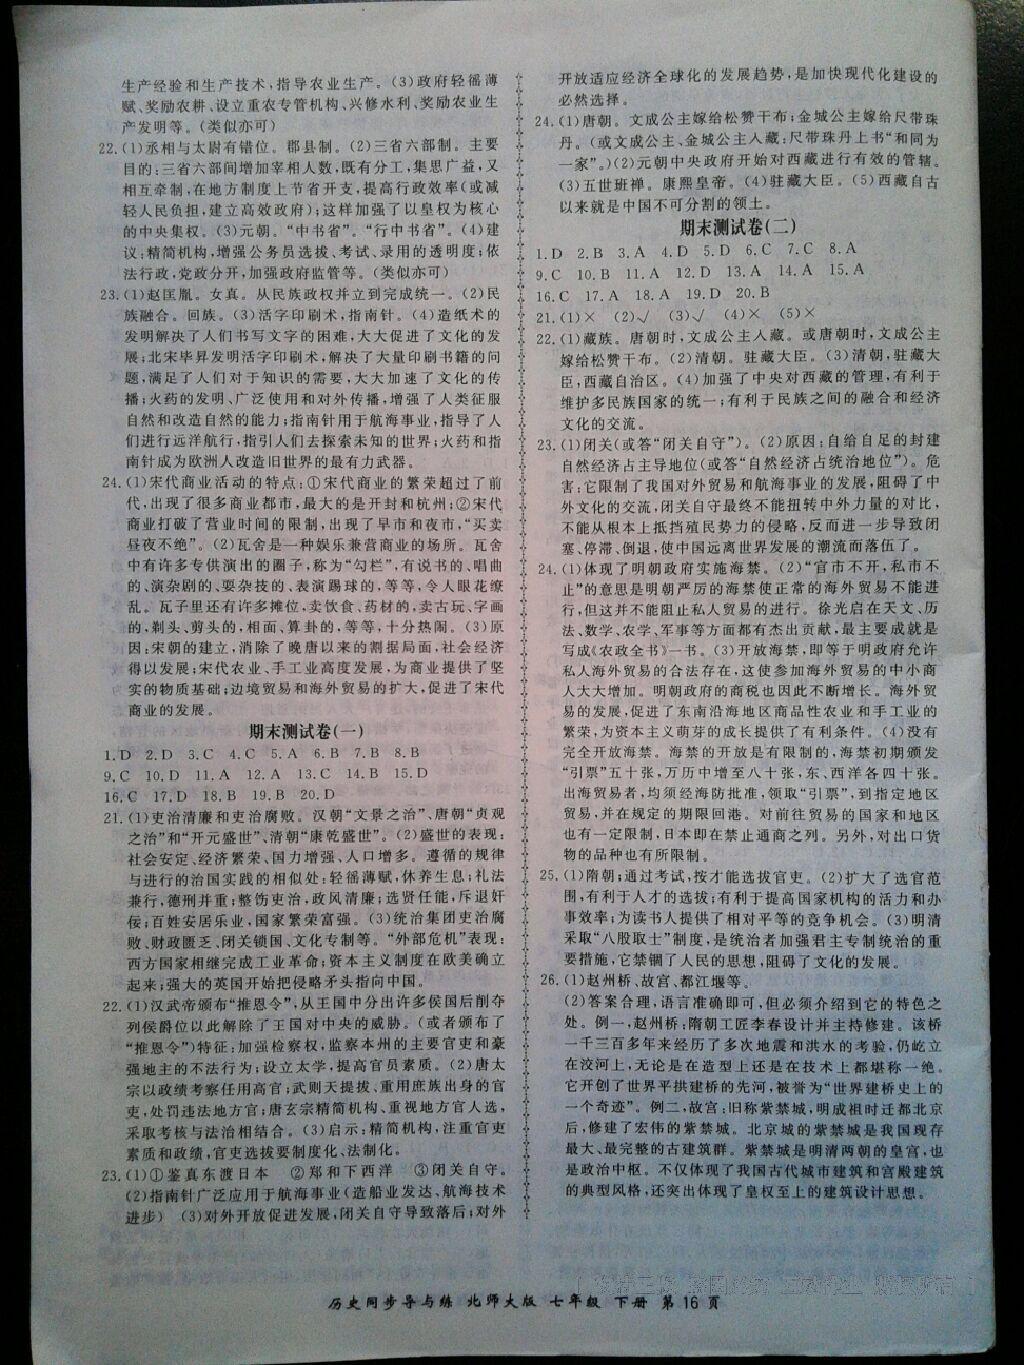 生产经验和生产技术,指导农业生产。(3)政府轻徭薄
赋、奖励农耕、设立重农专管机构、兴修水利、奖励农业生
产发明等。(类似亦可)
22.(1)丞相与太尉有错位。郡县制。(2)三省六部制。主要
目的:三省六部间增加宰相人数,既有分工,集思广益,又
相互牵制,在地方制度上节省开支,提高行政效率(或减
轻人民负担,建立高效政府);这样加强了以皇权为核心
的中央集权。(3)元朝。“中书省”。“行中书省”。(4)建
议:精简机构,增强公务员选拔、考试、录用的透明度;依
法行政,党政分开,加强政府监管等。(类似亦可)
23.(1)赵匡胤。女真。从民族政权并立到完成统一。(2)民
族融合。回族。(3)活字印刷术,指南针。(4)造纸术的
发明解决了人们书写文字的困难,大大促进了文化的发
展;北宋毕昇发明活字印刷术,解决了大量印刷书籍的问
题,满足了人们对于知识的需要,大大加速了文化的传
播;火药的发明、广泛使用和对外传播,增强了人类征服
自然和改造自然的能力;指南针用于航海事业,指导了人
们进行远洋航行,指引人们去探索未知的世界;火药和指
南针成为欧洲人改造旧世界的最有力武器。
24.(1)宋代商业活动的特点:①宋代商业的繁荣超过了前
代,出现了很多商业都市,最大的是开封和杭州;②宋代
商业打破了营业时间的限制,出现了早市和夜市,“买卖
昼夜不绝”。(2)瓦舍是一种娱乐兼营商业的场所。瓦舍
中有许多专供演出的圈子,称为“勾栏”,有说书的、唱曲
的、演杂剧的、耍杂技的、表演踢球的,等等,令人眼花缭
乱。瓦子里还有许多摊位,卖饮食、药材的,卖古玩、字画
的,剃头、剪头的,相面、算卦的,等等,十分热闹。(3)原
因:宋朝的建立,消除了晚唐以来的割据局面,社会经济
得以发展;宋代农业、手工业高度发展,为商业提供了坚
实的物质基础;边境贸易和海外贸易的扩大,促进了宋代
商业的发展。
期末测试卷(一)
1.D 2.D 3.C 4.C 5.A 6.B 7.B 8.B
9.C 10.D 11.A 12.A 13.C 14.B 15.D
16.C 17.D 18.B 19.B 20.D
21.(1)吏治清廉和吏治腐败。汉朝“文景之治”、唐朝“贞观
之治”和“开元盛世”、清朝“康乾盛世”。(2)盛世的表现:
社会安定、经济繁荣、国力增强、人口增多。遵循的规律
与进行的治国实践的相似处:轻徭薄赋,休养生息;礼法
兼行,德刑并重;整饬吏治,政风清廉;选贤任能,斥退奸
佞;百姓安居乐业,国家繁荣富强。(3)统治集团吏治腐
败、财政匮乏、闭关锁国、文化专制等。“外部危机”表现:
西方国家相继完成工业革命;资本主义制度在欧美确立
起来;强大的英国开始把侵略矛头指向中国。
22.(1)汉武帝颁布“推恩令”,从王国中分出许多侯国后削夺
列侯爵位以此解除了王国对中央的威胁。(或者颁布了
“推恩令”)特征:加强检察权,监察本州的主要官吏和豪
强地主的不法行为;设立太学,提高官员素质。(2)唐太
宗以政绩考察任用高官;武则天提拔、重用庶族出身的官
吏,处罚违法地方官;唐玄宗精简机构、重视地方官人选,
采取考核与法治相结合。(3)启示:精简机构,注重官吏
素质和政绩,官吏选拔要制度化、法制化。
23.(1)①鉴真东渡日本 ②郑和下西洋 ③闭关自守。
(2)指南针广泛应用于航海事业(造船业发达、航海技术
进步) (3)对外开放促进发展,闭关自守导致落后;对外
开放适应经济全球化的发展趋势,是加快现代化建设的
必然选择。
24.(1)唐朝。文成公主嫁给松赞干布;金城公主嫁给尺带珠
丹。(或文成公主、金城公主入藏;尺带珠丹上书“和同为
一家”。)(2)元朝中央政府开始对西藏进行有效的管辖。
(3)五世班禅。康熙皇帝。(4)驻藏大臣。(5)西藏自古
以来就是中国不可分割的领土。
期末测试卷(二)
1.D 2.B 3.A 4.D 5.D 6.C 7.C 8.A
9.C 10.B 11.A 12.D 13.A 14.A 15.A
16.C 17.A 18.A 19.D 20.B
21.(1)× (2)√ (3)√ (4)× (5)×
22.(1)藏族。唐朝时,文成公主入藏。或唐朝时,文成公主
嫁给松赞干布。(2)清朝。驻藏大臣。(3)清朝,驻藏大
臣,西藏自治区。(4)加强了中央对西藏的管理,有利于
维护多民族国家的统一;有利于民族之间的融合和经济
文化的交流。
23.(1)闭关(或答“闭关自守”)。(2)原因:自给自足的封建
自然经济占主导地位(或答“自然经济占统治地位”)。危
害:它限制了我国对外贸易和航海事业的发展,阻碍了中
外文化的交流,闭关自守最终不能扭转中外力量的对比,
不能从根本上抵挡殖民势力的侵略,反而进一步导致闭
塞、停滞、倒退,使中国远离世界发展的潮流而落伍了。
24.(1)体现了明朝政府实施海禁。(2)“官市不开,私市不
止”的意思是明朝严厉的海禁使正常的海外贸易不能进
行,但这并不能阻止私人贸易的进行。徐光启在天文、历
法、数学、农学、军事等方面都有杰出贡献,最主要成就是
写成《农政全书》一书。(3)开放海禁,即等于明政府允许
私人海外贸易的合法存在,这使参加海外贸易的中小商
人大大增加。明朝政府的商税也因此不断增长。海外贸
易的发展,促进了东南沿海地区商品性农业和手工业的
繁荣,为资本主义萌芽的成长提供了有利条件。(4)没有
完全开放海禁。海禁的开放是有限制的,海禁初期颁发
“引票”五十张,万历中增至八十张,东、西洋各四十张。
出海贸易者,均须经海防批准,领取“引票”,到指定地区
贸易,并在规定的期限回港。对前往贸易的国家和地区
也有一定限制,日本即在禁止通商之列。另外,对出口货
物的品种也有所限制。
25.(1)隋朝;通过考试,按才能选拔官吏。(2)扩大了选官范
围,有利于人才的选拔;有利于提高国家机构的活力和办
事效率;为读书人提供了相对平等的竞争机会。(3)明清
采取“八股取士”制度,是统治者加强君主专制统治的重
要措施,它禁锢了人民的思想,阻碍了文化的发展。
26.(1)赵州桥、故宫、都江堰等。
(2)答案合理,语言准确即可,但必须介绍到它的特色之
处。例一,赵州桥:隋朝工匠李春设计并主持修建。该桥
一千三百多年来经历了多次地震和洪水的考验,仍屹立
在洨河上,无论是在造型上还是在技术上都堪称一绝。
它开创了世界平拱建桥的先河,被誉为“世界建桥史上的
一个奇迹”。例二,故宫:旧称紫禁城,明成祖时迁都北京
后,修建了宏伟的紫禁城。北京城的紫禁城是我国现存
最大、最完整的古建筑群。紫禁城是明清两朝的皇宫,也
是政治中枢。不仅体现了我国古代城市建筑和宫殿建筑
的典型风格,还突出体现了皇权至上的建筑设计思想。
历史同步导与练 北师大版 七年级 下册 第16页